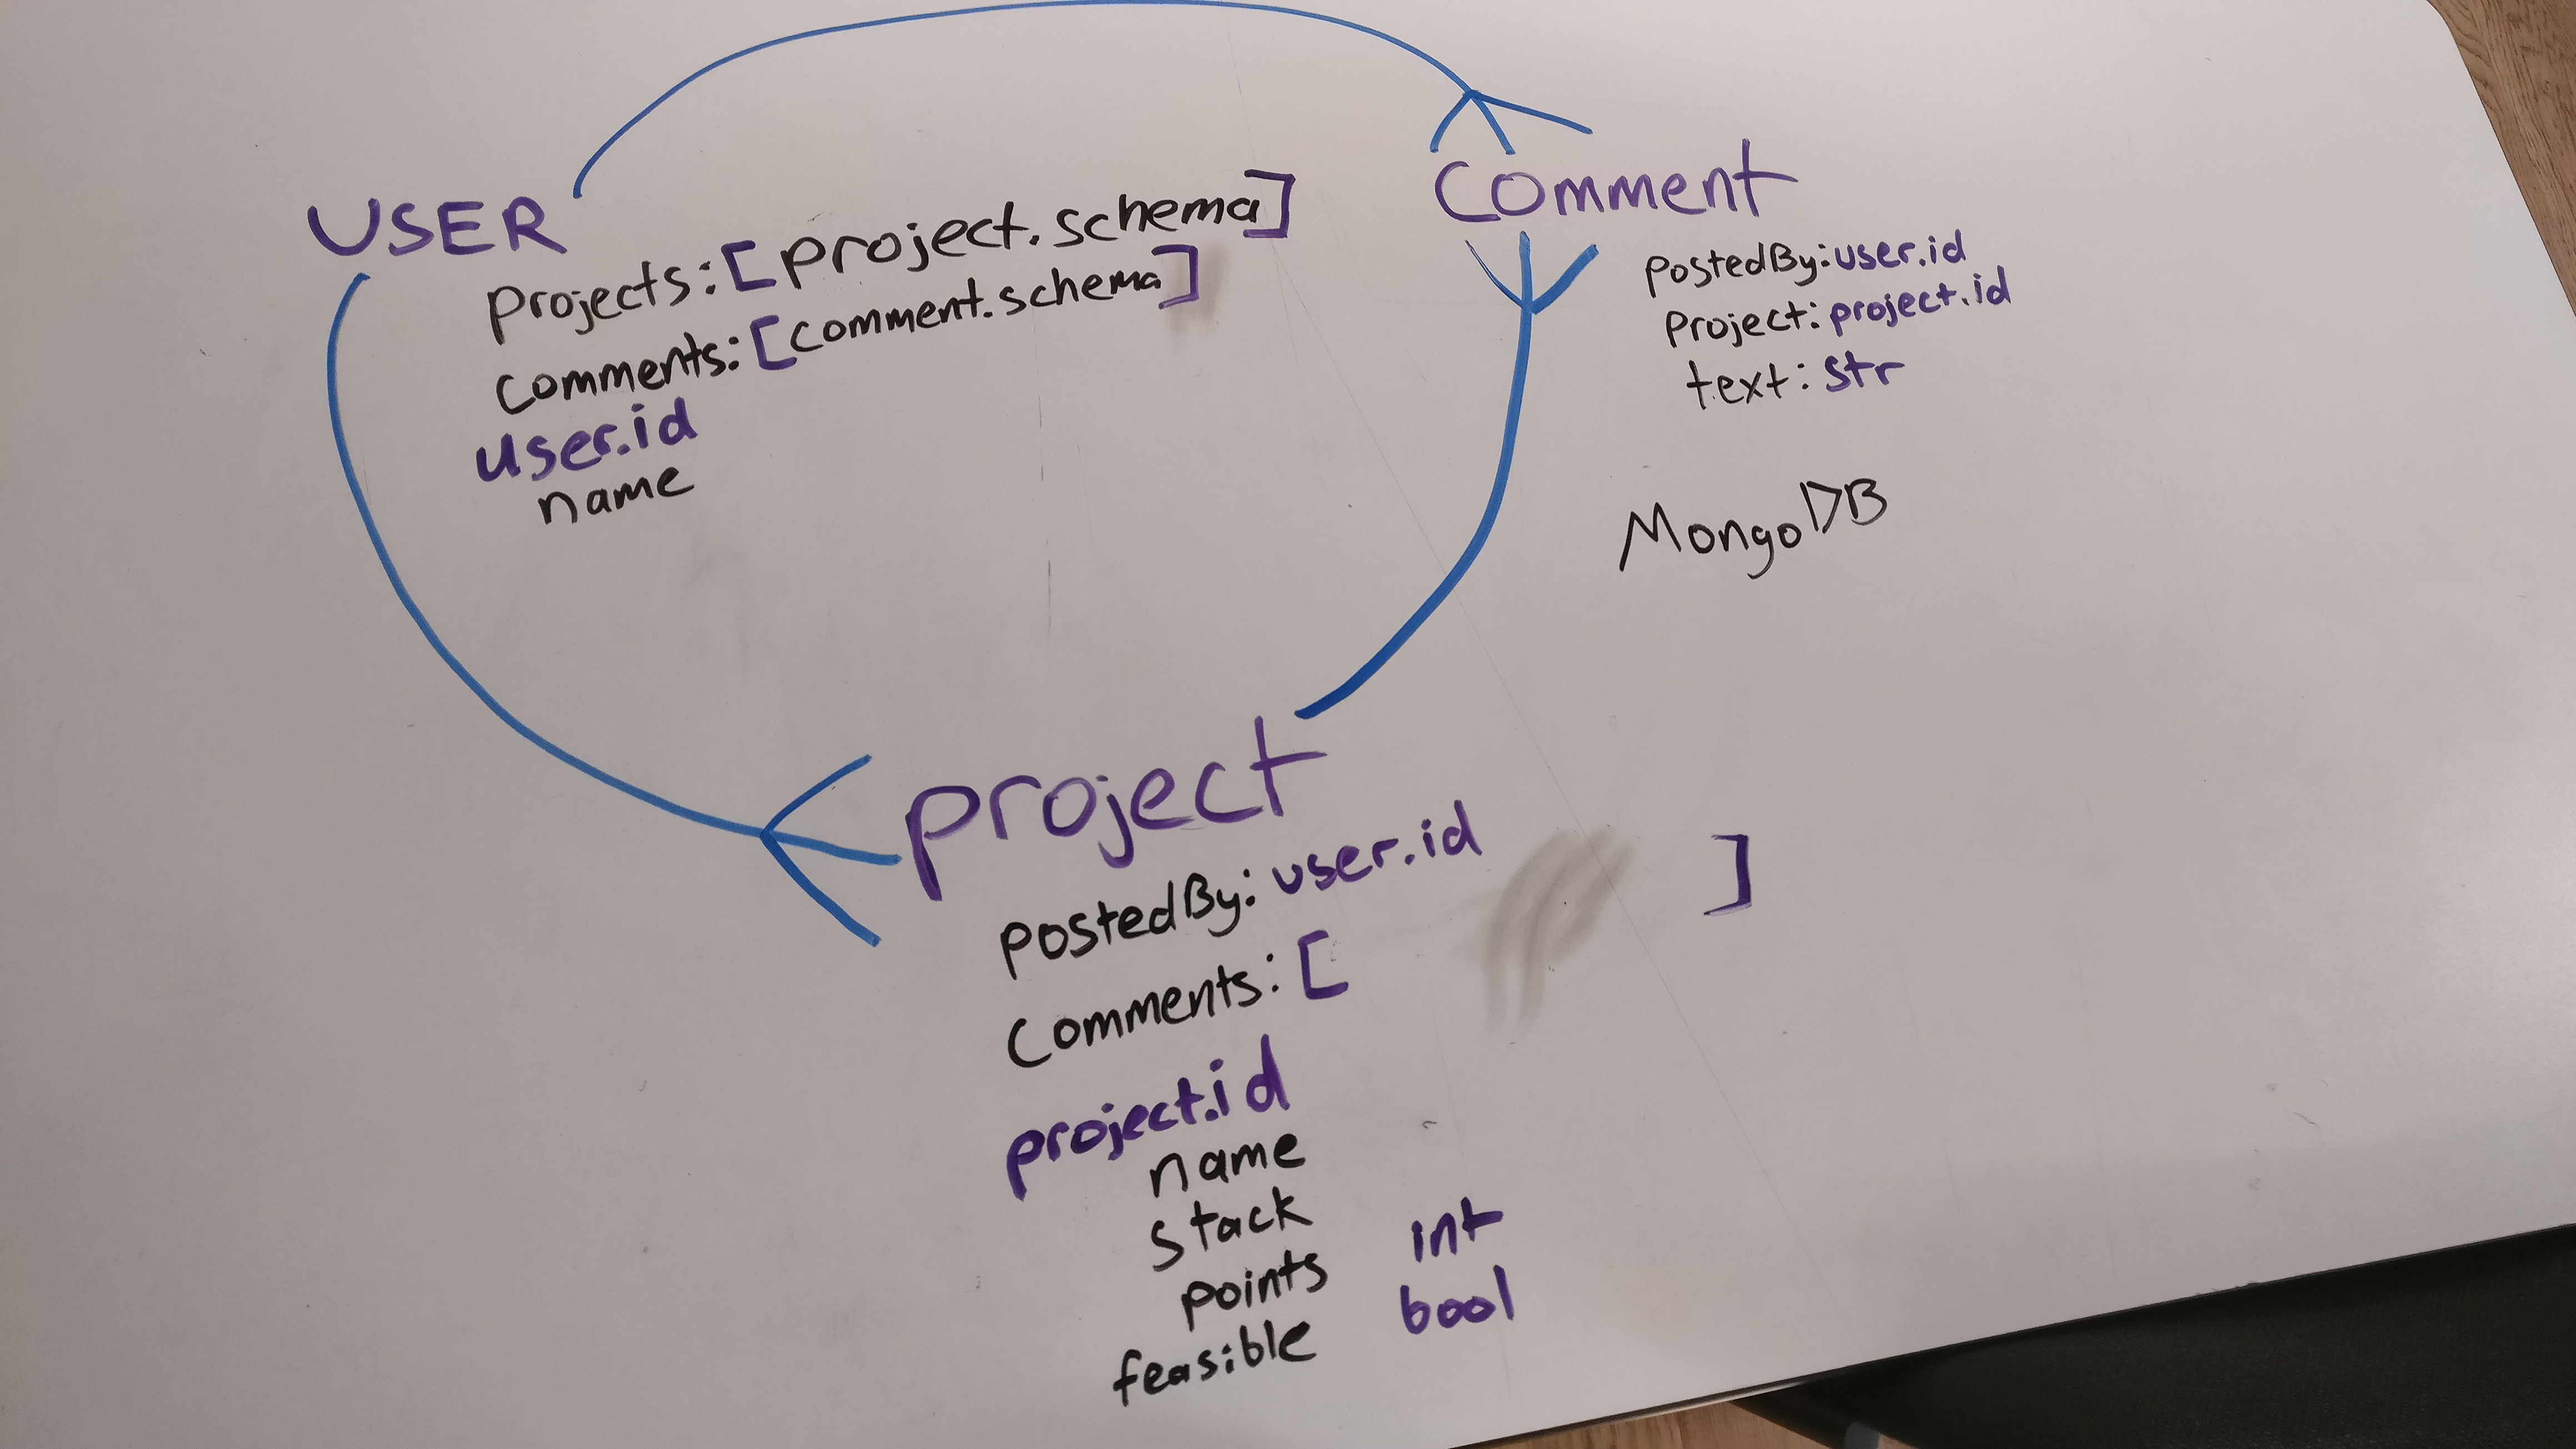 USER
Projects: [project.schema]
Comments: [comment.schema]
user.id
name
Comment
PostedBy: user.id
Project: project.id
text: str
MongoDB
project
postedBy: user.id
Comments: [ ]
project.id
name
stack
points int
feasible bool